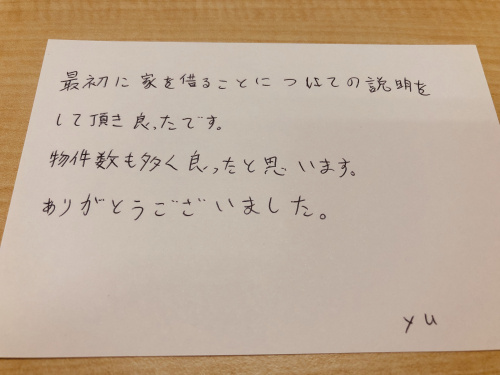 最初に家を借りることについての説明を
して頂き良ったです。
物件数も多く良ったと思います。
ありがとうございました。
yu